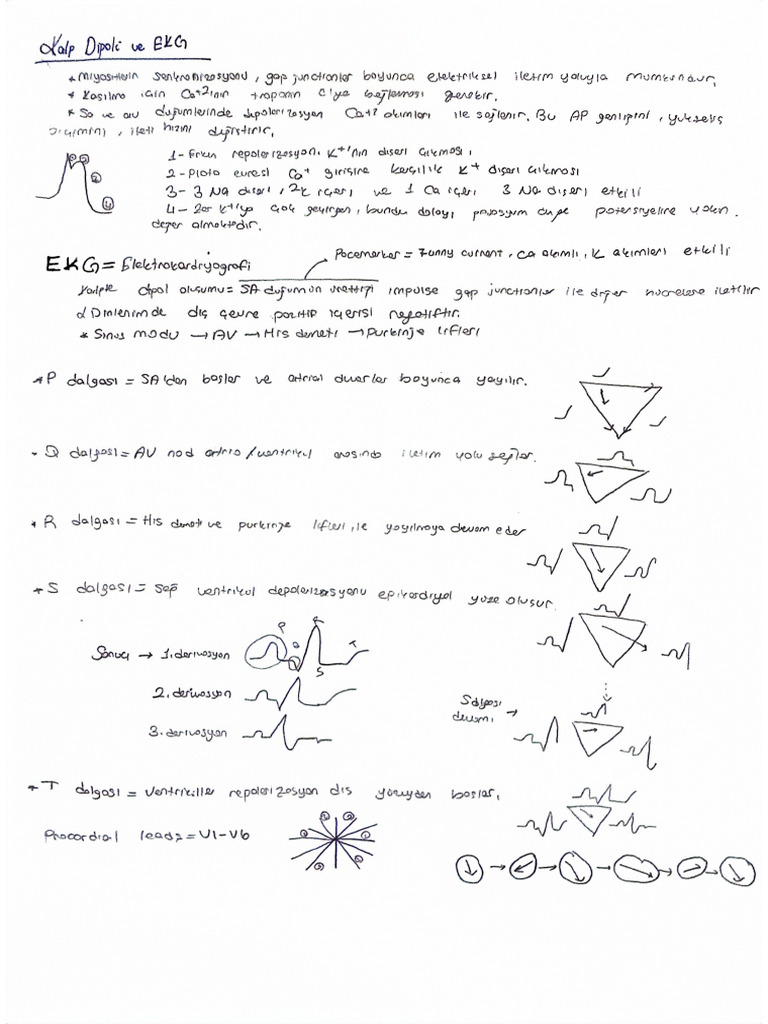 Kalp Dipoli ve EKG
* Miyositlerin senkronizasyonu, gap junctionlar boyunca elektriksel iletim yoluyla mümkündür.
* Kasılma için Ca+2'nin troponin C'ye bağlaması gerekir.
* Sa ve av düğümlerinde depolarizasyon Ca+2 akımları ile sağlanır. Bu AP genliğini, yükseliş
, ileti hızını değiştirir.
1- Erken repolarizasyon. K+'nin dışarı çıkması
2- Plato evresi Ca+ girişine karşılık K+ dışarı çıkması
3- 3 Na dışarı, 2K içeri ve 1 Ca içeri 3 Na dışarı etkili
4- Zar K+'ya çok geçirgen, bundan dolayı potasyum potansiyeline yakın
değer almaktadır.
Pacemarker = Funny current, ca akımlı, K akımları etkili
EKG = Elektrokardiyografi
Kalpte dipol oluşumu = SA düğümün ürettiği impulse gap junctionlar ile diğer hücrelere iletilir
Dinlenimde dış çevre pozitif içerisi negatiftir.
* Sinus modu → AV → His demeti → Purkinje lifleri
* P dalgası = SA'dan başlar ve atrial duvarlar boyunca yayılır.
- Q dalgası = AV nod atrio/ventrikül arasında iletim yolu sağlar.
* R dalgası = His demeti ve purkinje lifleri ile yayılmaya devam eder
* S dalgası = Sağ ventrikül depolarizasyonu epikardiyal yüze oluşur.
P
R
T
Q
S
Sonuç → 1. derivasyon
2. derivasyon
3. derivasyon
S dalgası
devamı →
* T dalgası = Ventriküller repolarizasyon dış yüzeyden başlar.
Precordial leadz = V1-V6